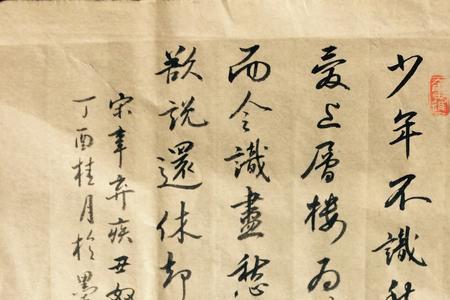 少年不識愁
愛上層樓為
而今識盡愁
欲說還休却
宋辛弃疾丑奴
丁酉桂月於墨